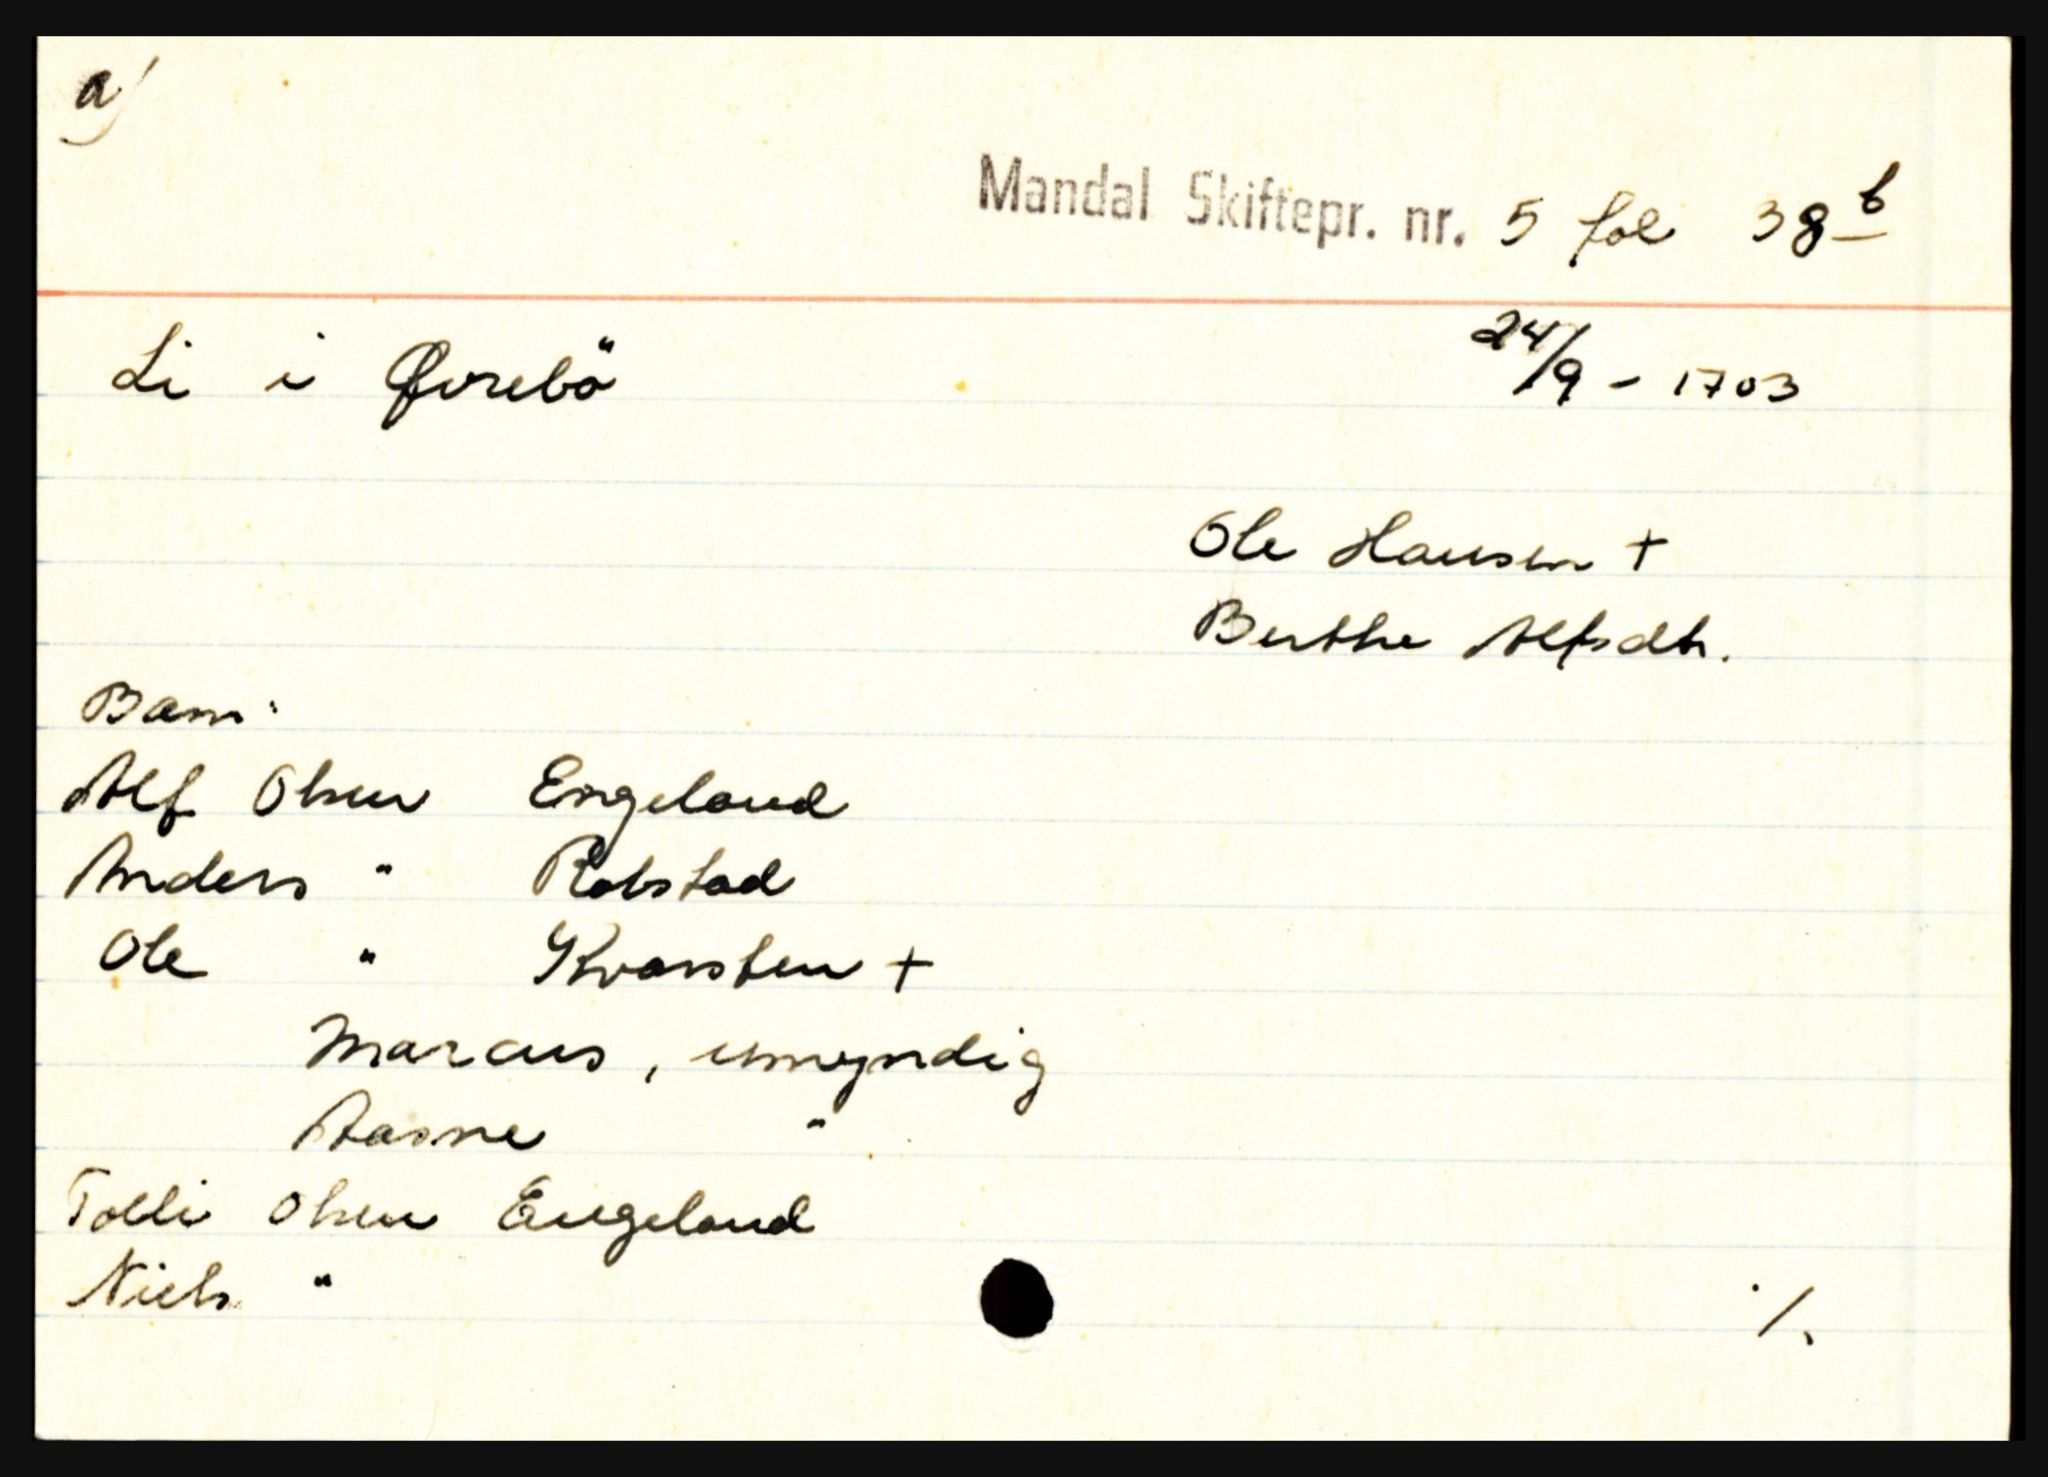 a)
Mandal Skiftepr. nr. 5 fol 38 b
Li i Øvrebö 24/9 - 1703
Ole Hansen +
Berthe Alfsdtr.
Barn:
Alf Olsen Engeland
Anders " Robstad
Ole " Kvarsten +
Marcus, umyndig
Aasne "
Tolli Olsen Engeland
Niels "
./.